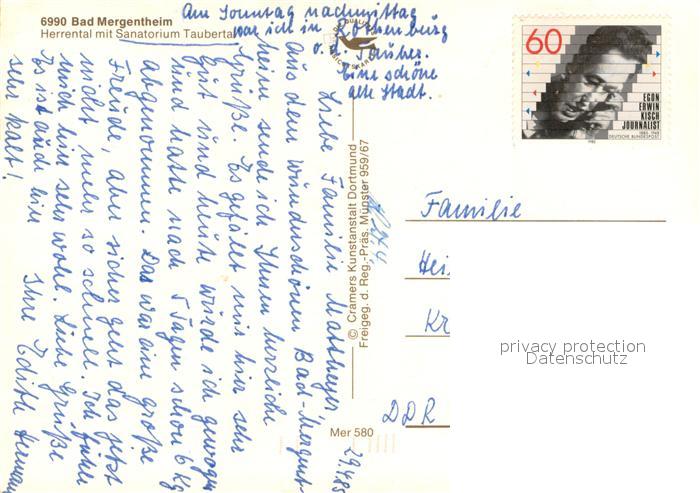 6990 Bad Mergentheim
Herrental mit Sanatorium Taubertal
Am Sonntag nachmittag
war ich in Rothenburg
o. d. Tauber.
Eine schöne
alte Stadt.
Liebe Familie
Aus dem wunderschönen Bad-Mergent-
heim sende ich Ihnen herzliche
Grüße. Es gefällt mir hier sehr
gut und heute würde ich gewogen
und hatte nach 5 Tagen schon 6 Kg
abgenommen. Das war eine große
Freude, aber sicher geht das jetzt
nicht mehr so schnell. Ich fühle
mich hier sehr wohl. Liebe Grüße
Es ist auch hier
sehr kalt!
Ihre Edith
29.4.85
© Cramers Kunstanstalt Dortmund
Freigeg. d. Reg.-Präs. Münster 959/67
Mer 580
60
EGON
ERWIN
KISCH
JOURNALIST
1885-1948
DEUTSCHE BUNDESPOST
1985
Familie
Hei
Kr
DDR
privacy protection
Datenschutz